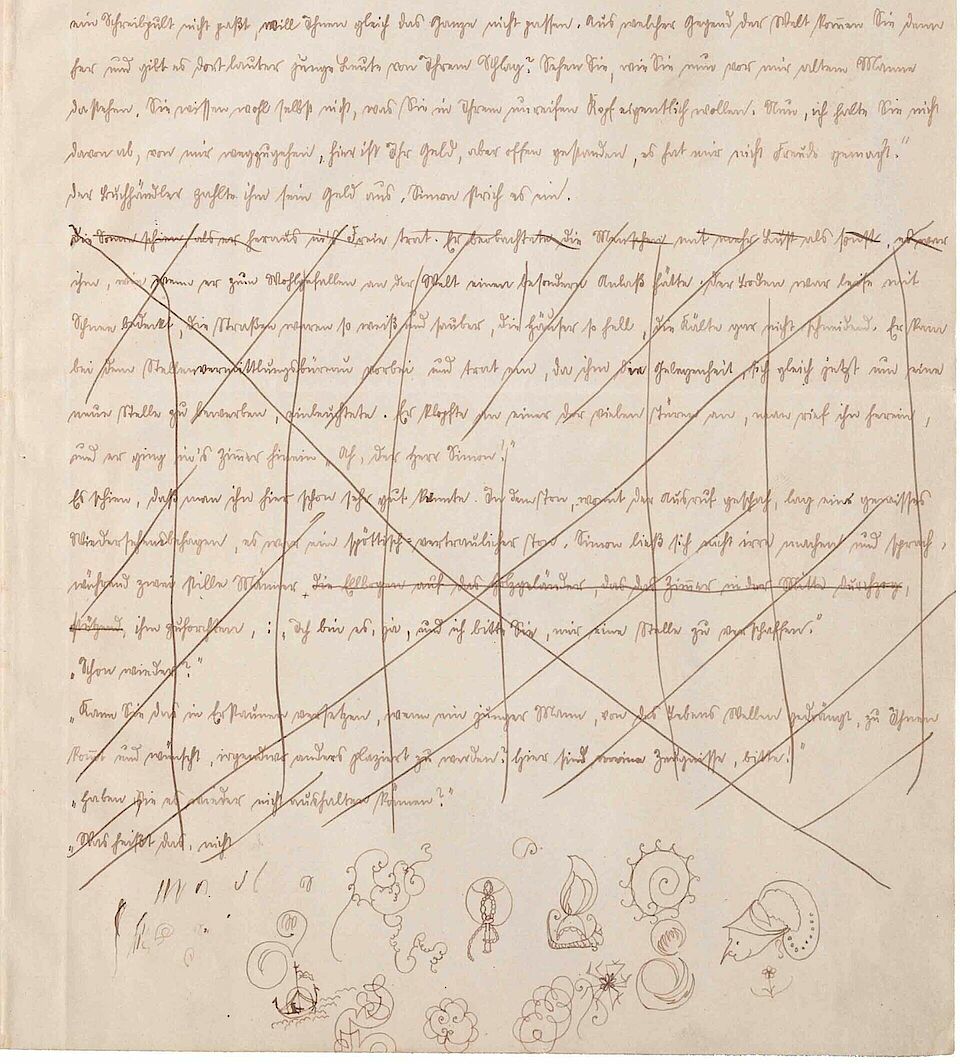 ein Schreibpult nicht paßt, will Ihnen gleich das Ganze nicht passen. Aus welcher Gegend der Welt kom̅en Sie denn
her und gibt es dort lauter junge Leute von Ihrem Schlag? Sehen Sie, wie Sie nun vor mir altem Manne
dastehen. Sie wissen wohl selbst nicht, was Sie in Ihrem unreifen Kopf eigentlich wollen. Nun, ich halte Sie nicht
davon ab, von mir wegzugehen, hier ist Ihr Geld, aber offen gestanden, es hat mir nicht Freude gemacht."
Der Buchhändler zahlte ihm sein Geld aus, Simon strich es ein.
Die Sonne schien, als er heraus in's Freie trat. Er beobachtete die Menschen mit mehr Lust als sonst, es war
ihm, wie wenn er zum Wohlgefallen an der Welt einen besondern Anlaß hätte, der Boden war leise mit
Schnee bedeckt, die Straßen waren so weiß und sauber, die Häuser so hell, die Kälte gar nicht schneidend. Er kam
bei dem Stellenvermittlungsbüreau vorbei und trat ein, da ihm die Gelegenheit, sich gleich jetzt um eine
neue Stelle zu bewerben, einleuchtete. Er klopfte an einer der vielen Türen an, man rief ihn herein,
und er ging in's Zim̅er hinein „Ah, der Herr Simon!"
Es schien, daß man ihn hier schon sehr gut kannte. In dem Ton, womit der Ausruf geschah, lag eine gewisses
Wiedersehensbehagen, es war ein spöttisch-vertraulicher Ton. Simon ließ sich nicht irre machen und sprach,
während zwei stille Männer die Ellbogen auf das Holzgeländer, das das Zim̅er in der Mitte durchzog,
stützend, ihm zuhorchten, : „Ich bin es, ja, und ich bitte Sie, mir eine Stelle zu verschaffen."
„Schon wieder?"
„Kann Sie das in Erstaunen versetzen, wenn ein junger Mann, von des Lebens Wellen gedrängt, zu Ihnen
kom̅t und wünscht, irgendwo anders plaziert zu werden? Hier sind meine Zeugnisse, bitte!"
„Haben Sie es wieder nicht aushalten können?"
„Was heißt das, nicht